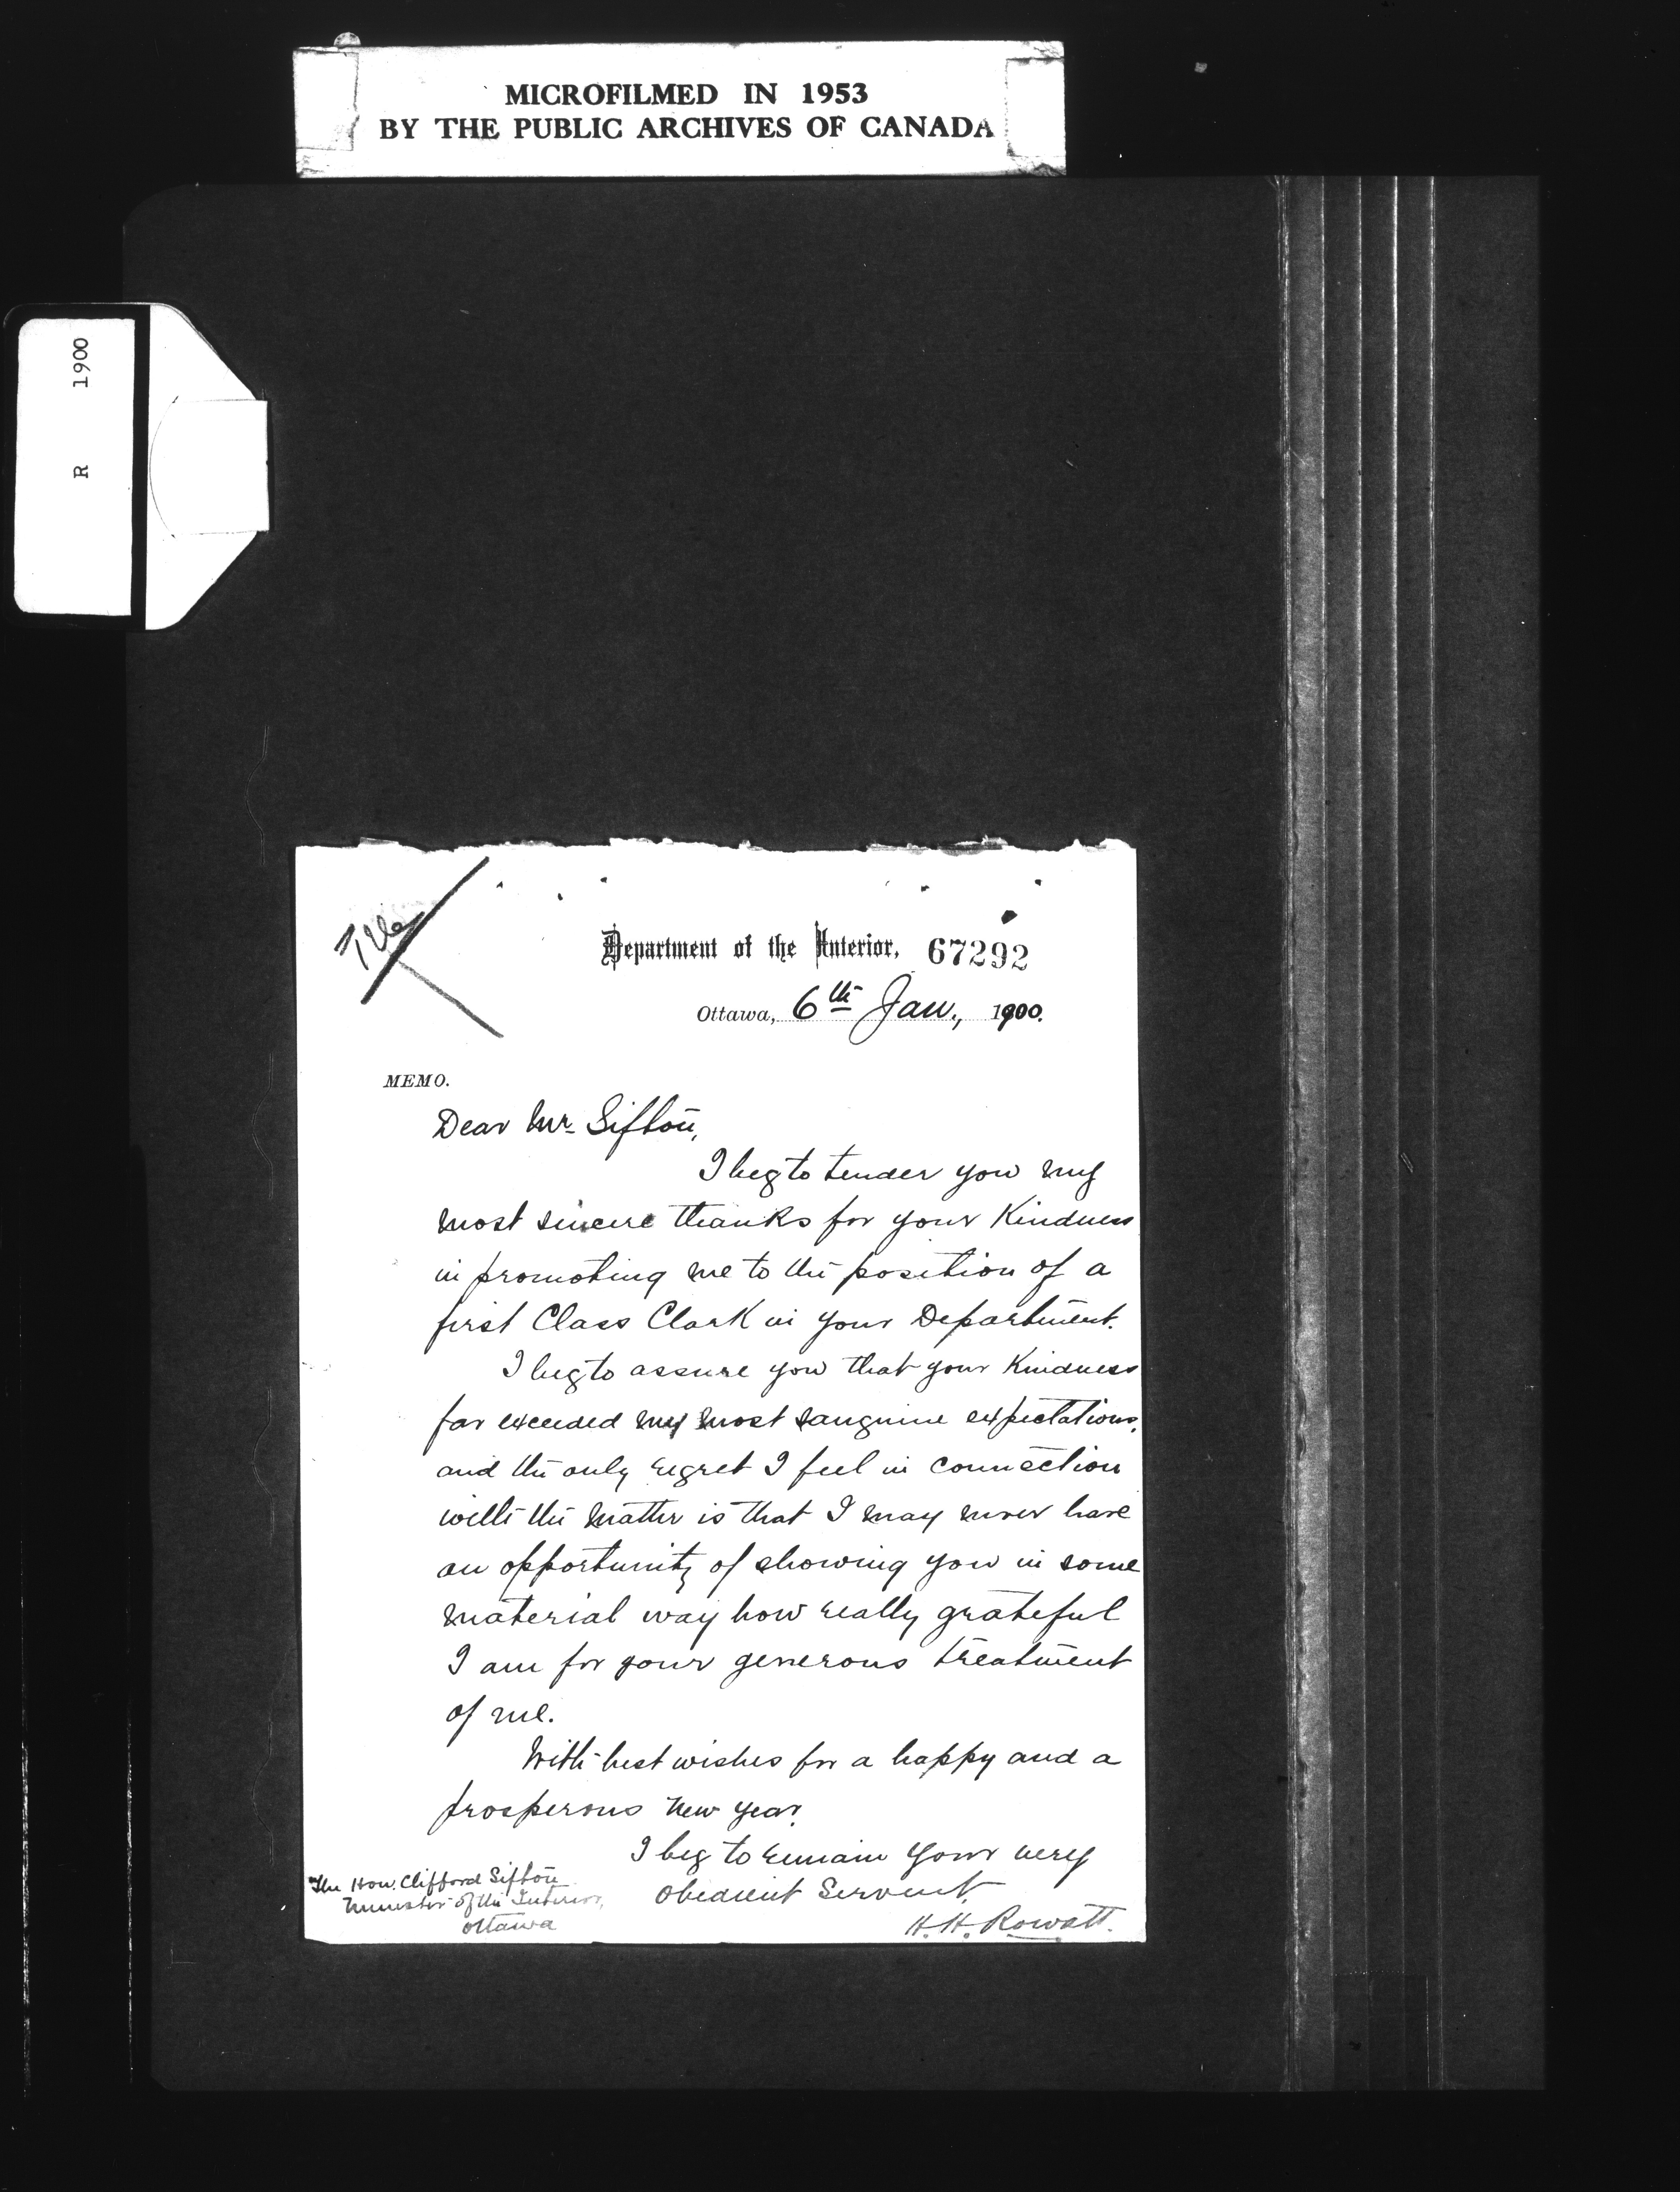 MICROFILMED IN 1953
BY THE PUBLIC ARCHIVES OF CANADA
R 1900
File
Department of the Interior, 67292
Ottawa, 6th Jan., 1900.
MEMO.
Dear Mr. Sifton,
I beg to tender you my
most sincere thanks for your Kindness
in promoting me to the position of a
first Class Clerk in your Department.
I beg to assure you that your Kindness
far exceeded my most sanguine expectations,
and the only regret I feel in connection
with the matter is that I may never have
an opportunity of showing you in some
material way how really grateful
I am for your generous treatment
of me.
With best wishes for a happy and a
prosperous New Year,
I beg to remain your very
Obedient Servant,
H. H. Rowatt.
The Hon. Clifford Sifton
Minister of the Interior,
Ottawa